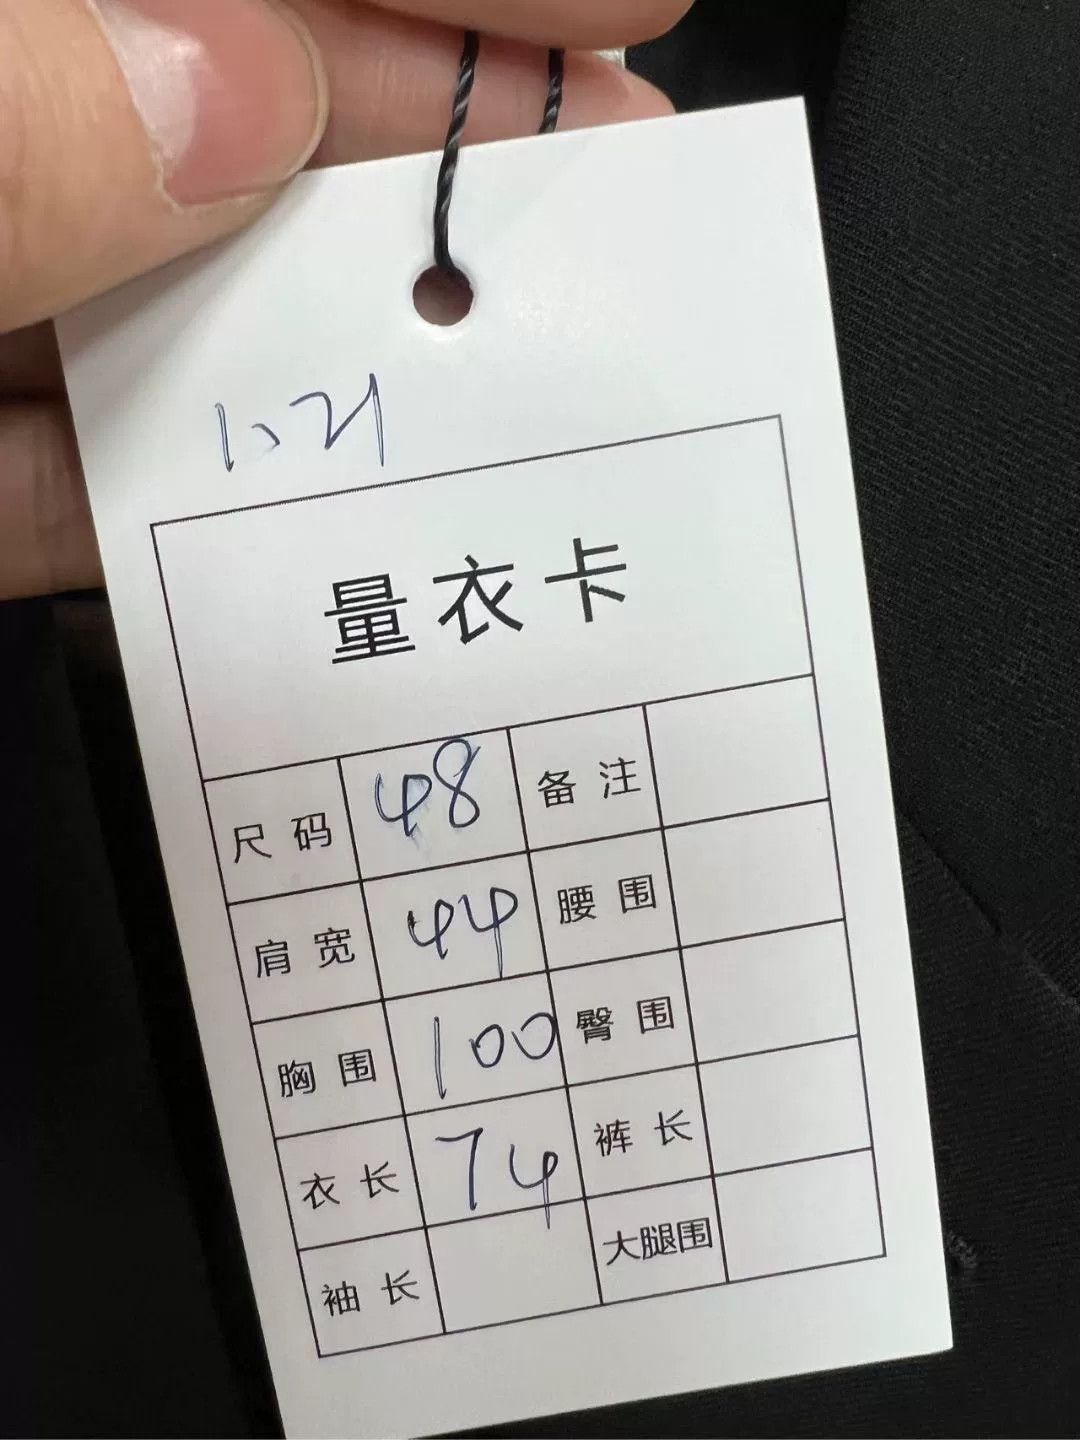 1、21
量衣卡
尺码 48 备注
肩宽 44 腰围
胸围 100 臀围
衣长 74 裤长
袖长 大腿围